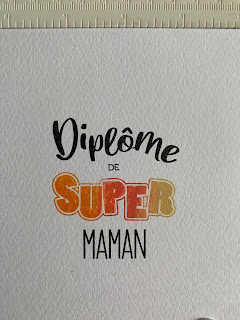 Diplôme
DE
SUPER
MAMAN